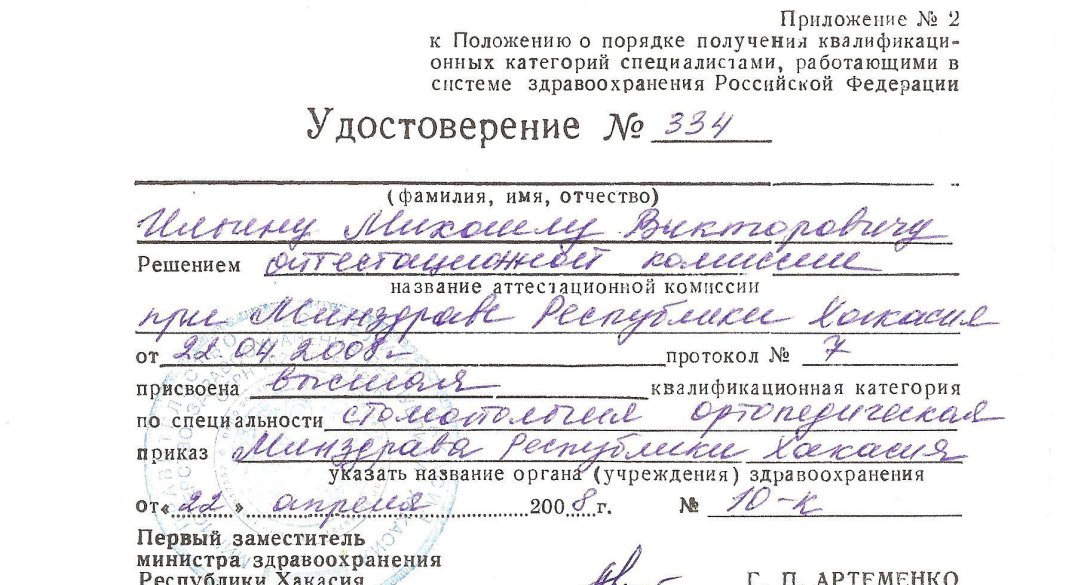 Приложение № 2
к Положению о порядке получения квалификаци-
онных категорий специалистами, работающими в
системе здравоохранения Российской Федерации
Удостоверение № 334
(фамилия, имя, отчество)
Ильину Михаилу Викторовичу
Решением аттестационной комиссии
название аттестационной комиссии
при Минздраве Республики Хакасия
от 22.04.2008г протокол № 7
присвоена высшая квалификационная категория
по специальности стоматология ортопедическая
приказ Минздрава Республики Хакасия
указать название органа (учреждения) здравоохранения
от «22» апреля 2008 г. № 10-к
Первый заместитель
министра здравоохранения
Республики Хакасия Г. П. АРТЕМЕНКО